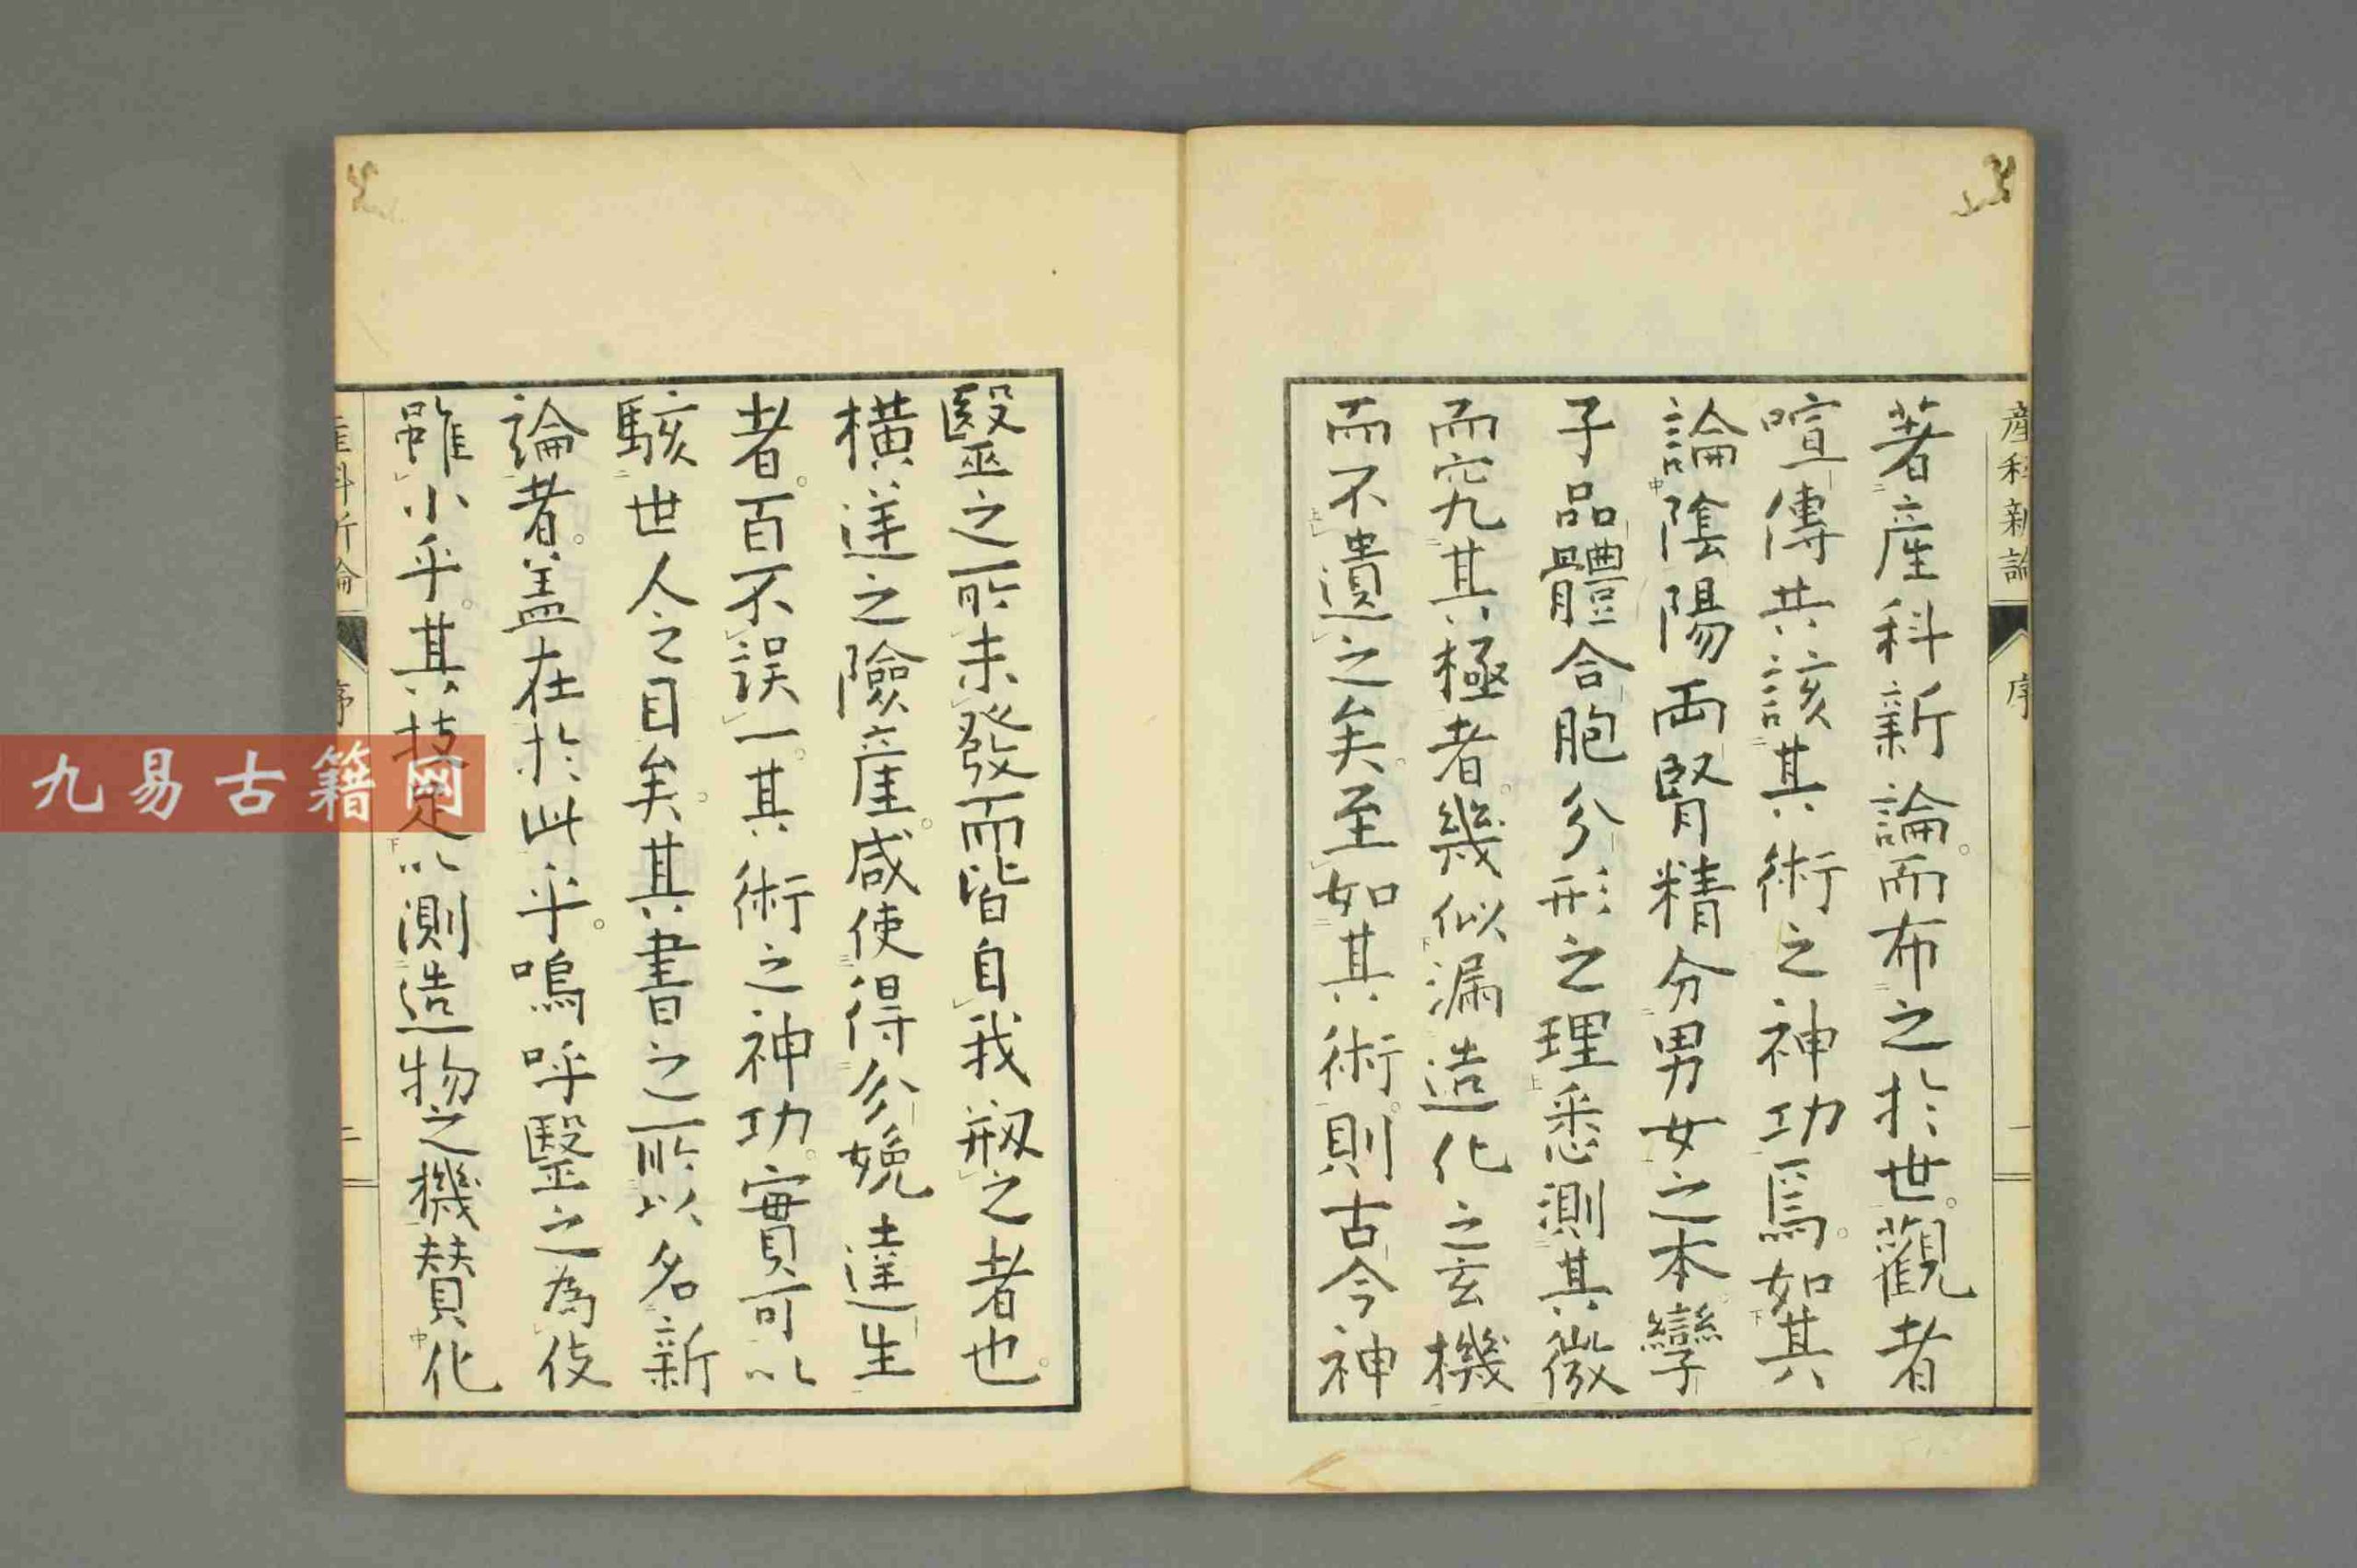 產科新論
序
著產科新論而布之於世觀者
喧傳其該其術之神功焉如其
論陰陽両腎精分男女之本孿
子品體合胞分形之理悉測其微
而究其極者幾似漏造化之玄機
而不遺之矣至如其術則古今神
毉之所未發而皆自我剏之者也
橫逆之險產咸使得分娩達生
者百不誤一其術之神功實可以
駭世人之目矣其書之所以名新
論者盖在於此乎嗚呼毉之為伎
雖小乎其技足以測造物之機賛化
產科新論
序
二
九易古籍网